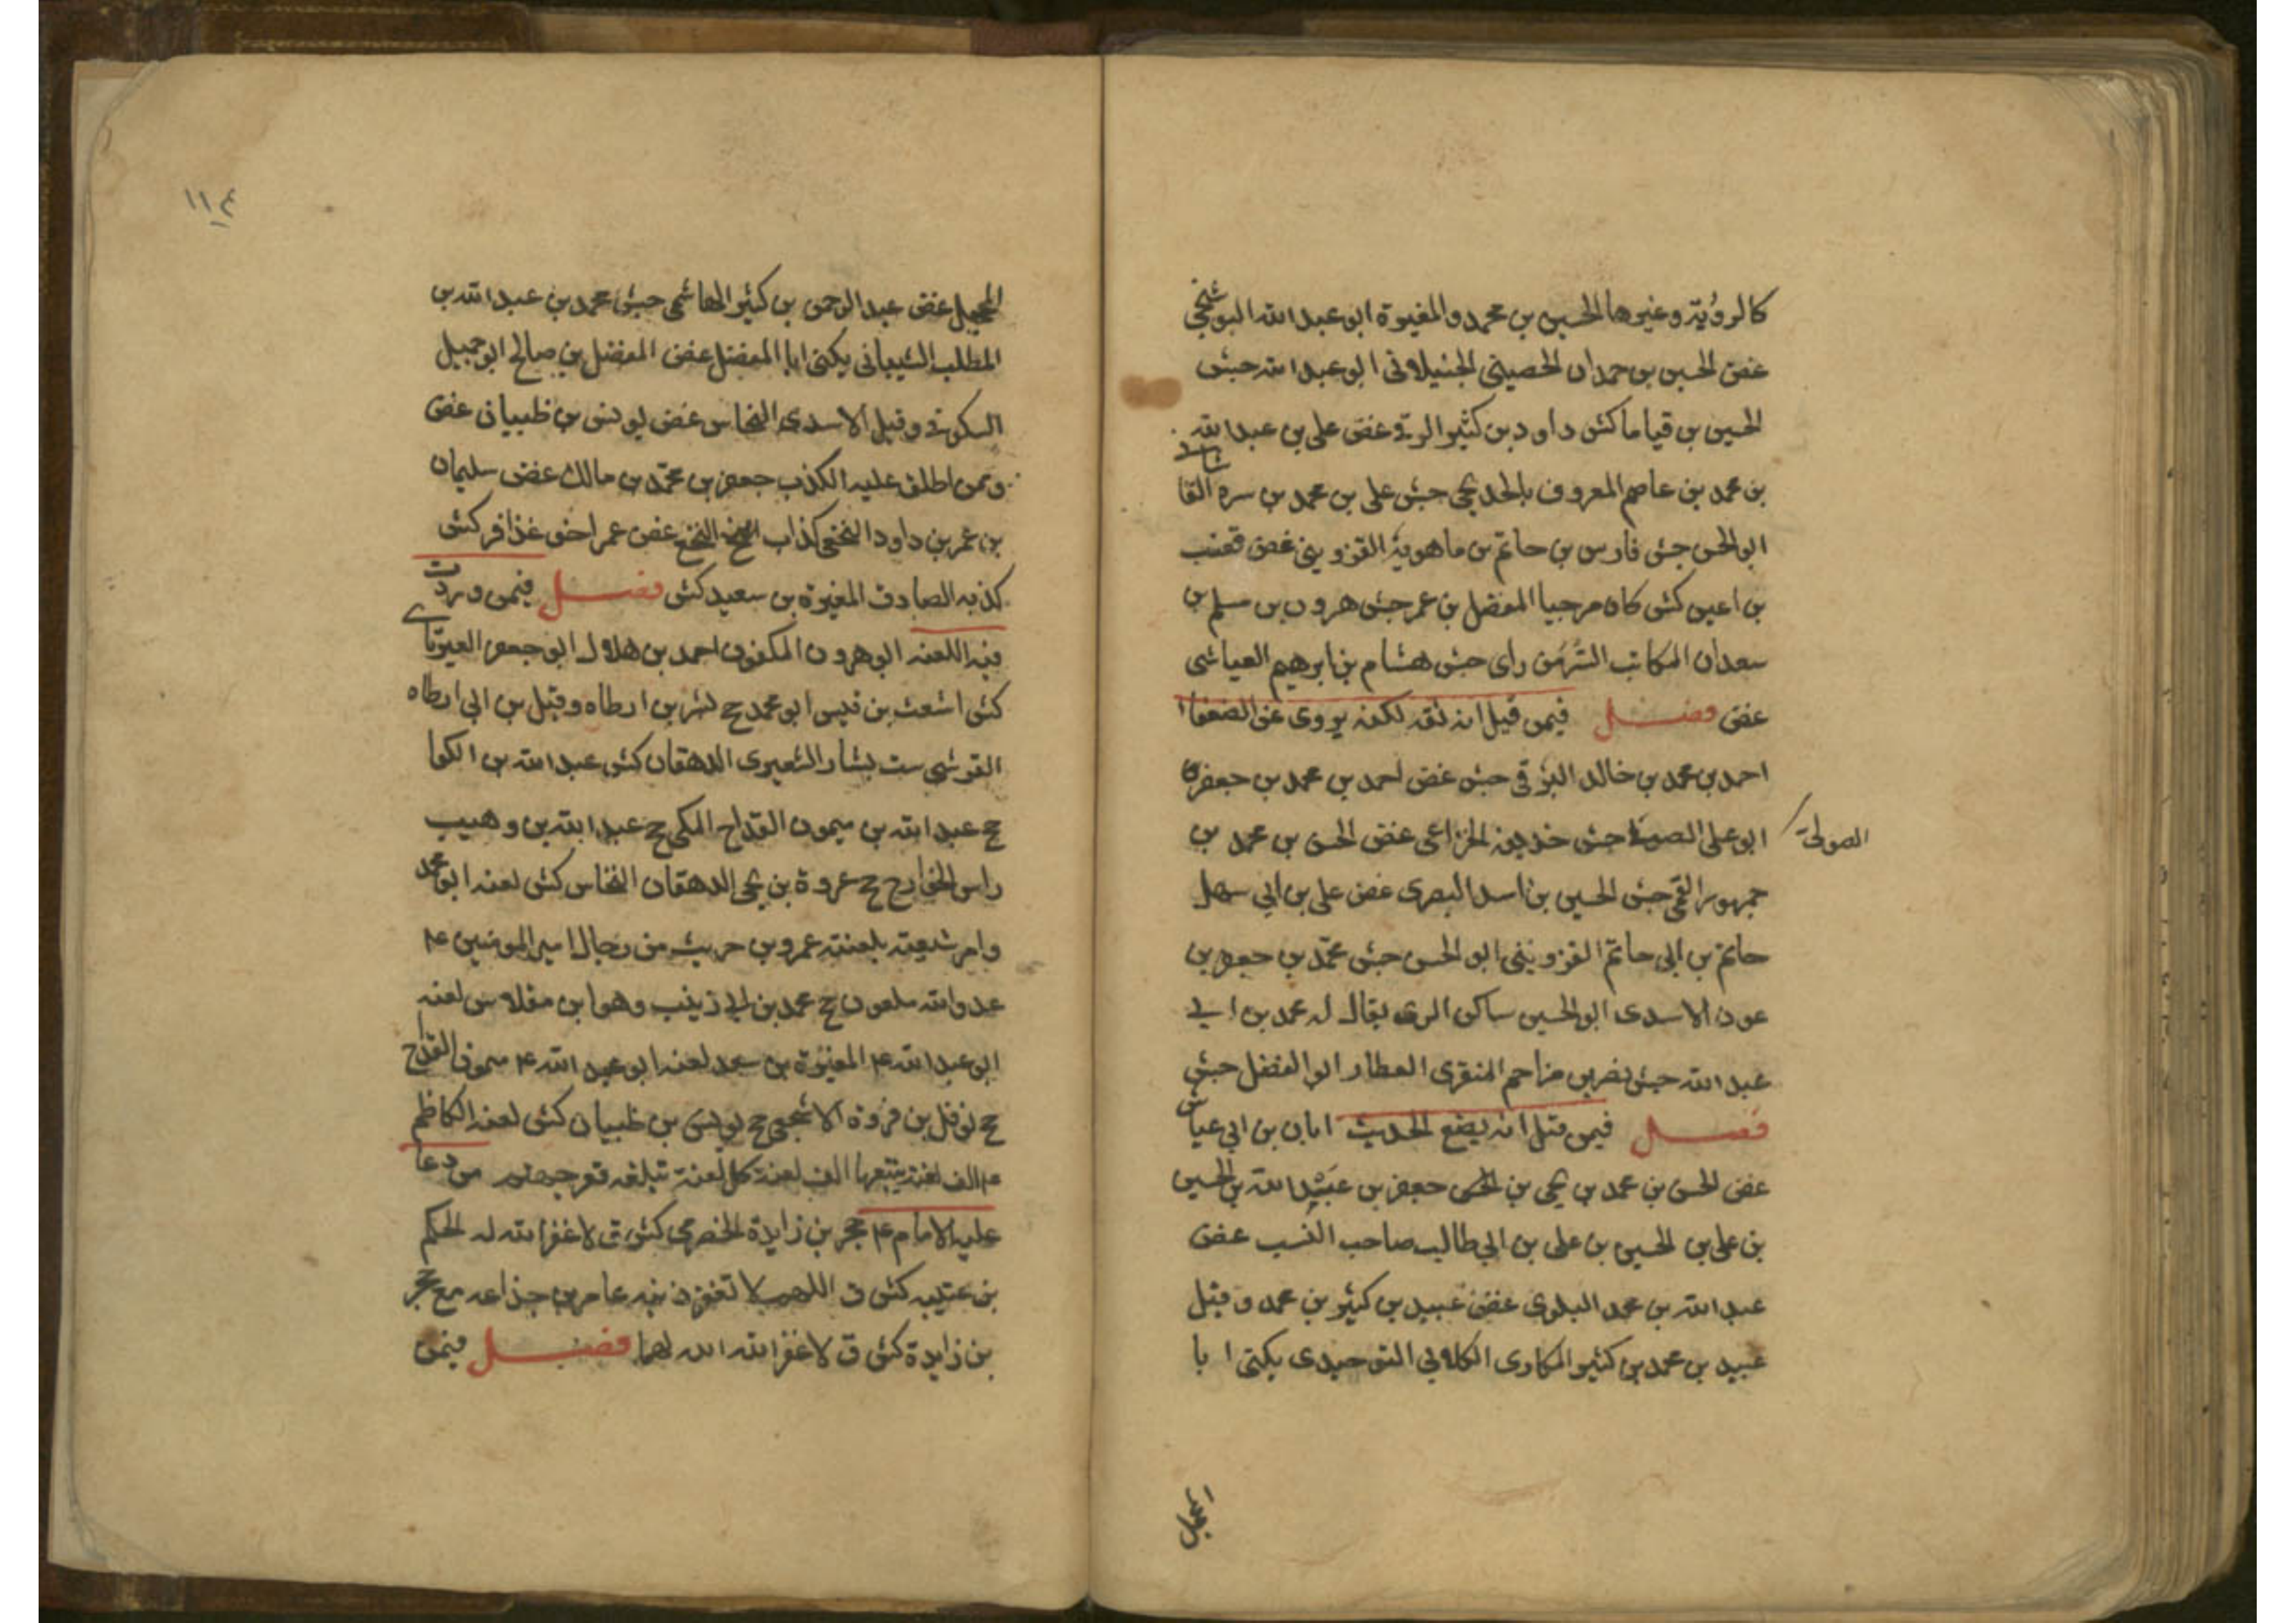 كالرؤية وغيرها الحسين بن محمد والمغيرة ابو عبد الله البوشنجي
غض الحسين بن حمدان الحصيني الجنبلاني ابو عبد الله جش
الحسين بن قياما كش داود بن كثير الرقي غض علي بن عبد الله
بن محمد بن عاصم المعروف بالخديجي جش علي بن محمد بن سره القاشاني
ابو الحسن جش فارس بن حاتم بن ماهويه القزويني غض قعنب
بن اعين كش كان مرجيا المفضل بن عمر جش هرون بن مسلم بن
سعدان الكاتب السر من راى جش هشام بن ابرهيم العياشي
غض فصل فيمن قيل انه ثقه لكنه يروى عن الضعفا
احمد بن محمد بن خالد البرقي جش غض احمد بن محمد بن جعفر
ابو علي الصولي جش خديفه الخزاعي غض الحسن بن محمد بن
الصولي
جمهور القمي جش الحسين بن اسد البصري غض علي بن ابي سهل
حاتم بن ابي حاتم القزويني ابو الحسن جش محمد بن جعفر بن
عون الاسدى ابو الحسين ساكن الرى يقال له محمد بن ابي
عبد الله جش نصر بن مزاحم المنقرى العطار ابو الفضل جش
فصل فيمن قيل انه يضع الحديث ابان بن ابي عياش
غض الحسن بن محمد بن يحيى بن الحسن جعفر بن عبيد الله بن الحسين
بن علي بن الحسين بن علي بن ابي طالب صاحب النسب غض
عبد الله بن محمد البلوى غض عبيد بن كثير بن محمد وقيل
عبيد بن محمد بن كثير البكاوى الكلابي التوحيدى يكنى ابا
١١٤
غض عبد الرحمن بن كثير الهاشمي جش محمد بن عبد الله بن
المطلب الشيباني يكنى ابا المفضل غض المفضل بن صالح ابو جميل
السكوني وقيل الاسدى النخاس غض يونس بن ظبيان غض
وممن اطلق عليه الكذب جعفر بن محمد بن مالك غض سليمان
بن عمر بن داود النخعي كذاب النخع غض عمر اخو عذافر كش
كذبه الصادق المغيرة بن سعيد كش فصل فيمن وردت
فيه اللعنه ابو هرون المكفوف احمد بن هلال ابو جعفر العبرتاي
كش اشعث بن قيس ابو محمد ح بشر بن ارطاه وقيل بن ابي ارطاه
القرشي ست بشار الشعيرى الدهقان كش عبد الله بن الكوا
ح عبد الله بن ميمون القداح المكي ح عبد الله بن وهب
راس الخوارج ح عروة بن يحيى الدهقان النخاس كش لعنه ابو محمد
وامر شيعته بلعنته عمرو بن حريث من رجال امير المومنين ع
عدو الله ملعون ح محمد بن ابي زينب وهو ابن مقلاس لعنه
ابو عبد الله ع المغيرة بن سعد لعنه ابو عبد الله ع ميمون القداح
ح نوفل بن فروة الاشجعي ح يونس بن ظبيان كش لعنه الكاظم
ع الف لعنة يتبعها الف لعنة كل لعنة تبلغه قعر جهنم من دعا
عليه الامام ع حجر بن زايدة الحضرمي كش ق لا غفر الله له الحكم
بن عتيبه كش ق اللهم لا تغفر ذنبه عامر بن جذاعه مع حجر
بن زايدة كش ق لا غفر الله لهما فصل فيمن